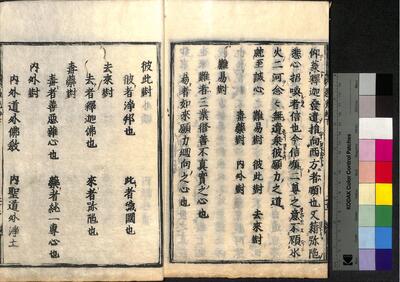 仰蒙釋迦發遣指向西方者願也又藉弥陀
悲心招喚者信也今信順二尊之意不顧水
火二河念々無遺乗彼願力之道
就至誠心　難易對　彼此對　去來對
毒藥對　内外對
難易對
難者三業修善不真實之心也
易者如來願力廻向之心也
彼此對
彼者浄邦也　此者穢國也
去來對
去者釋迦佛也　來者弥陀也
毒藥對
毒者善悪雜心也　藥者純一専心也
内外對
内外道外佛教　内聖道外浄土
KODAK Color Control Patches